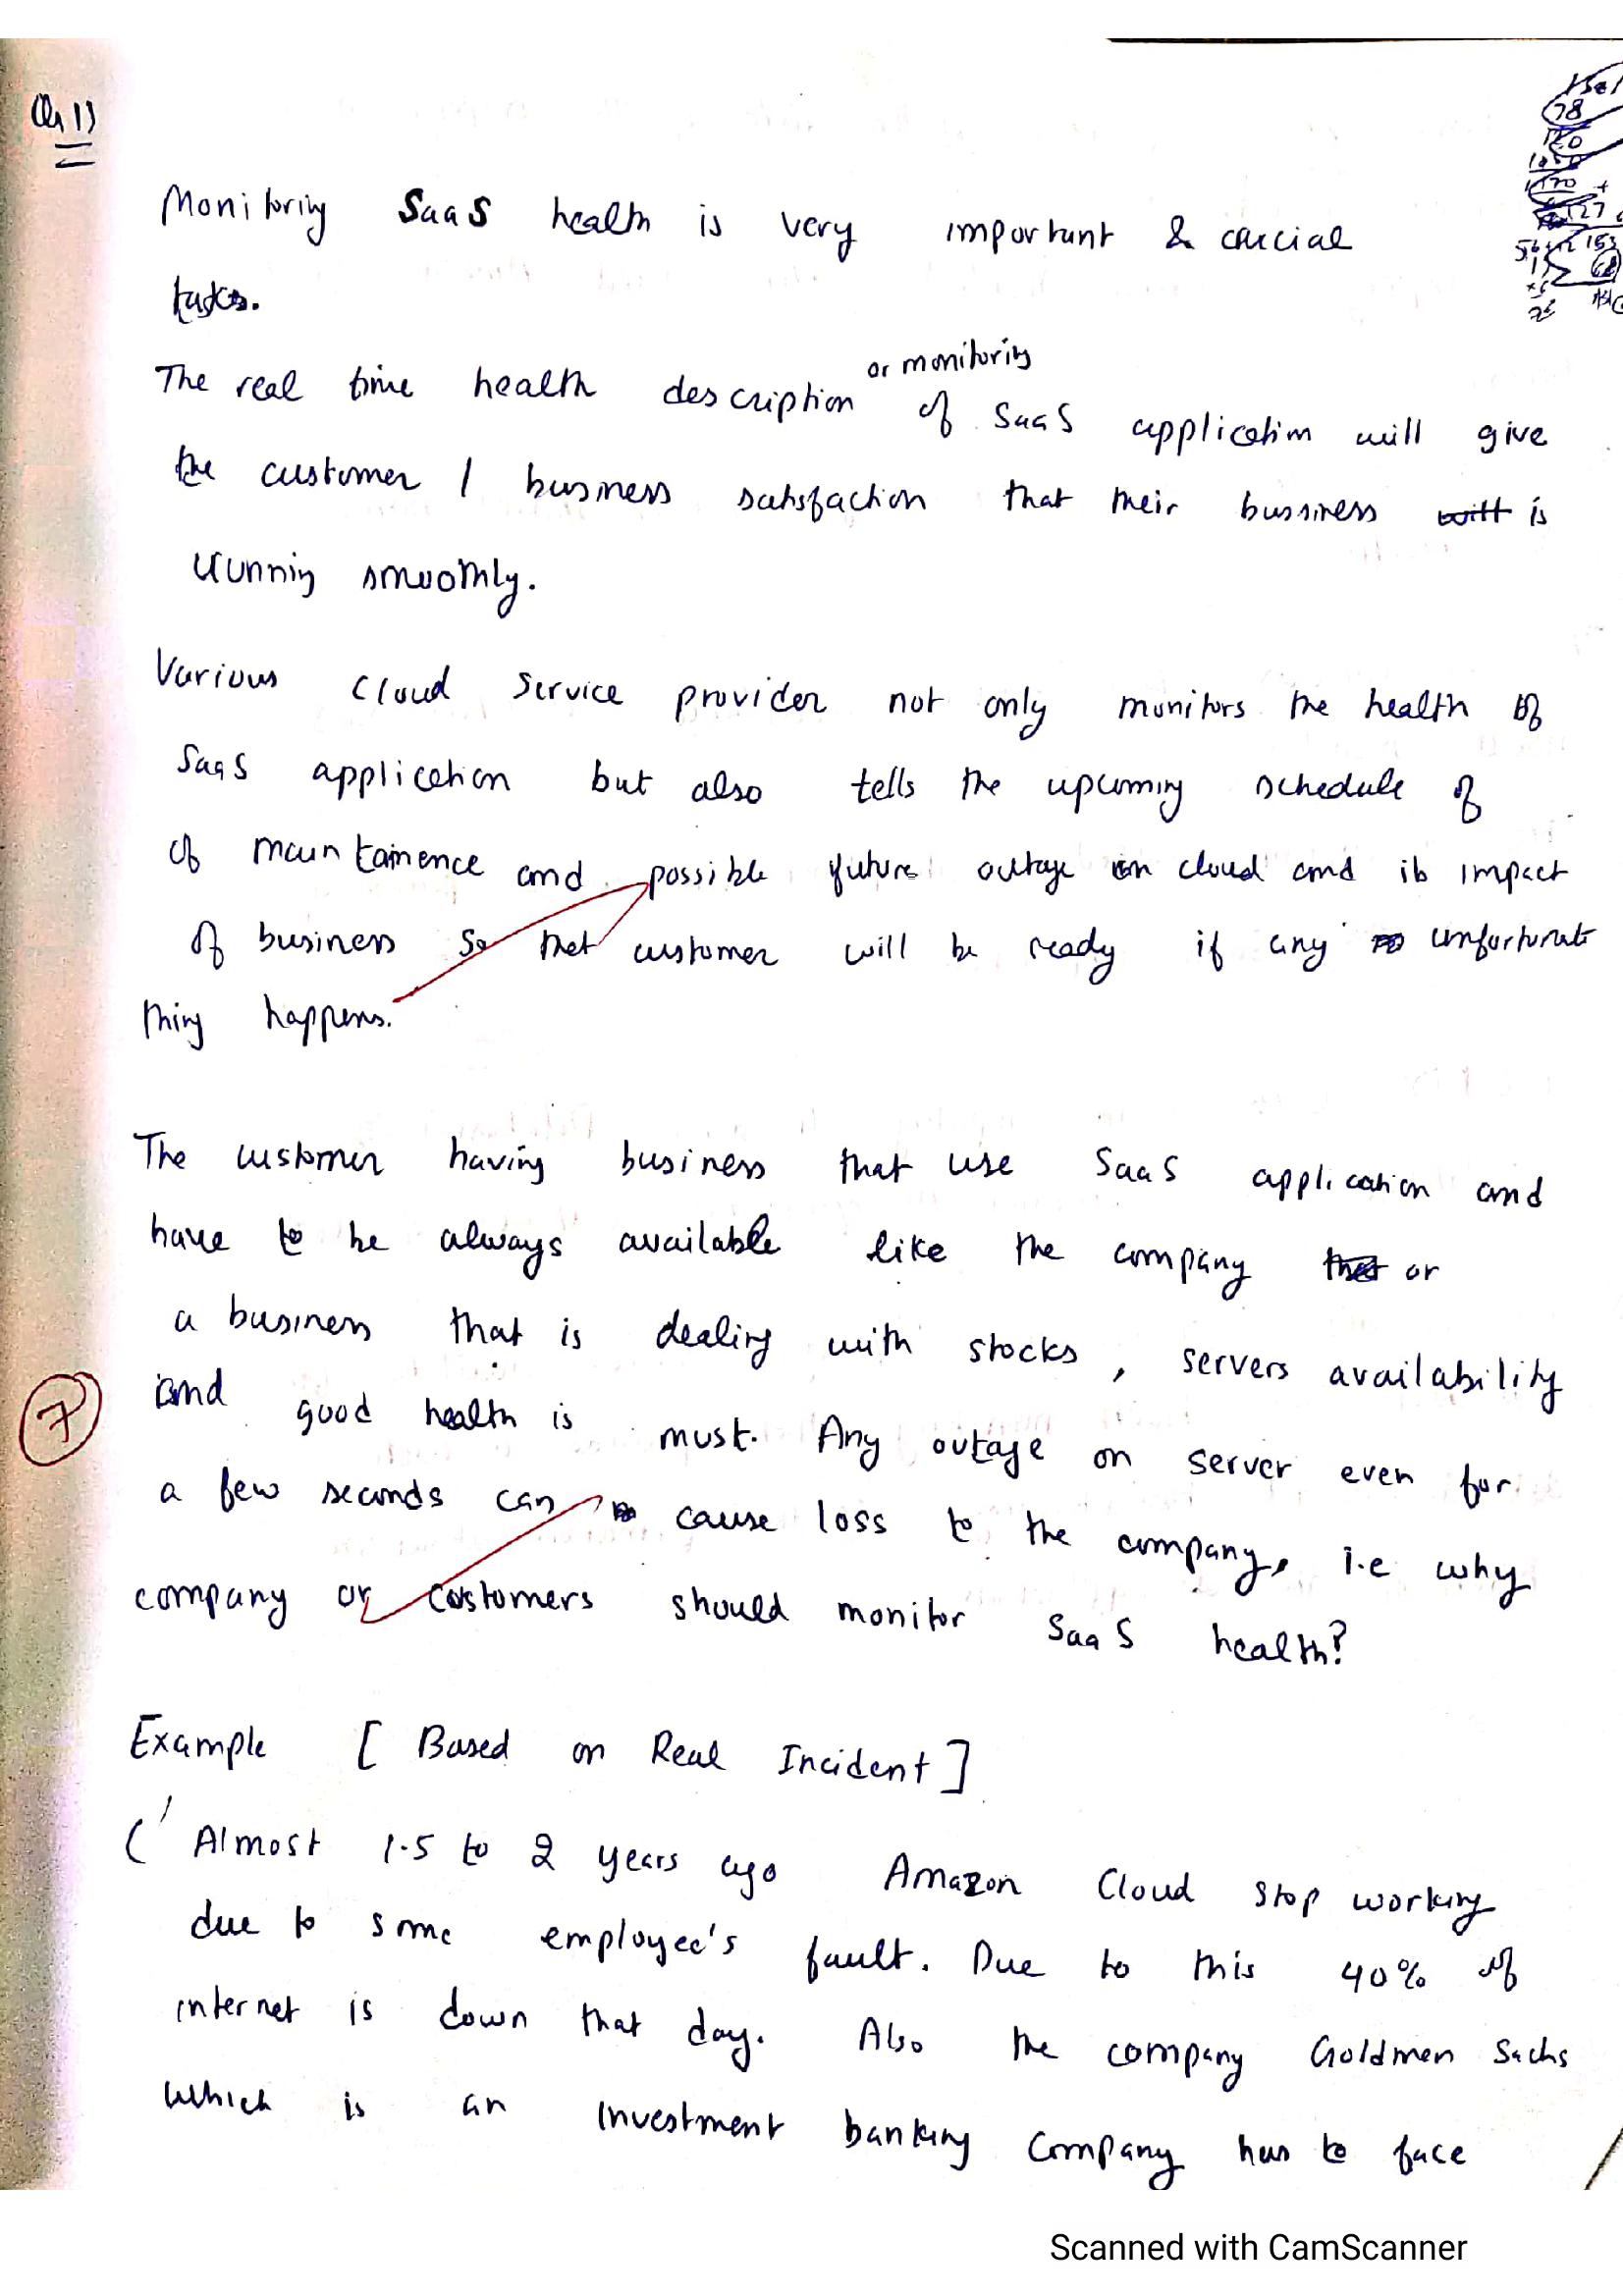 Qn 1)
Monitoring SaaS health is very important & crucial
tasks.
The real time health description or monitoring of SaaS application will give
the customer / business satisfaction that their bussiness will is
running smoothly.
Various cloud service provider not only monitors the health of
SaaS application but also tells the upcoming schedule of
of maintainence and possible future outage in cloud and its impact
of business so that customer will be ready if any unfortunate
thing happens.
The customer having business that use SaaS application and
have to be always available like the company that or
a business that is dealing with stocks, servers availability
and good health is must. Any outage on server even for
7
a few seconds can cause loss to the company, i.e why
company or customers should monitor SaaS health?
Example [ Based on Real Incident ]
( Almost 1.5 to 2 years ago Amazon Cloud stop working
due to some employee's fault. Due to this 40% of
internet is down that day. Also the company Goldmen Sachs
which is an investment banking company has to face
Scanned with CamScanner